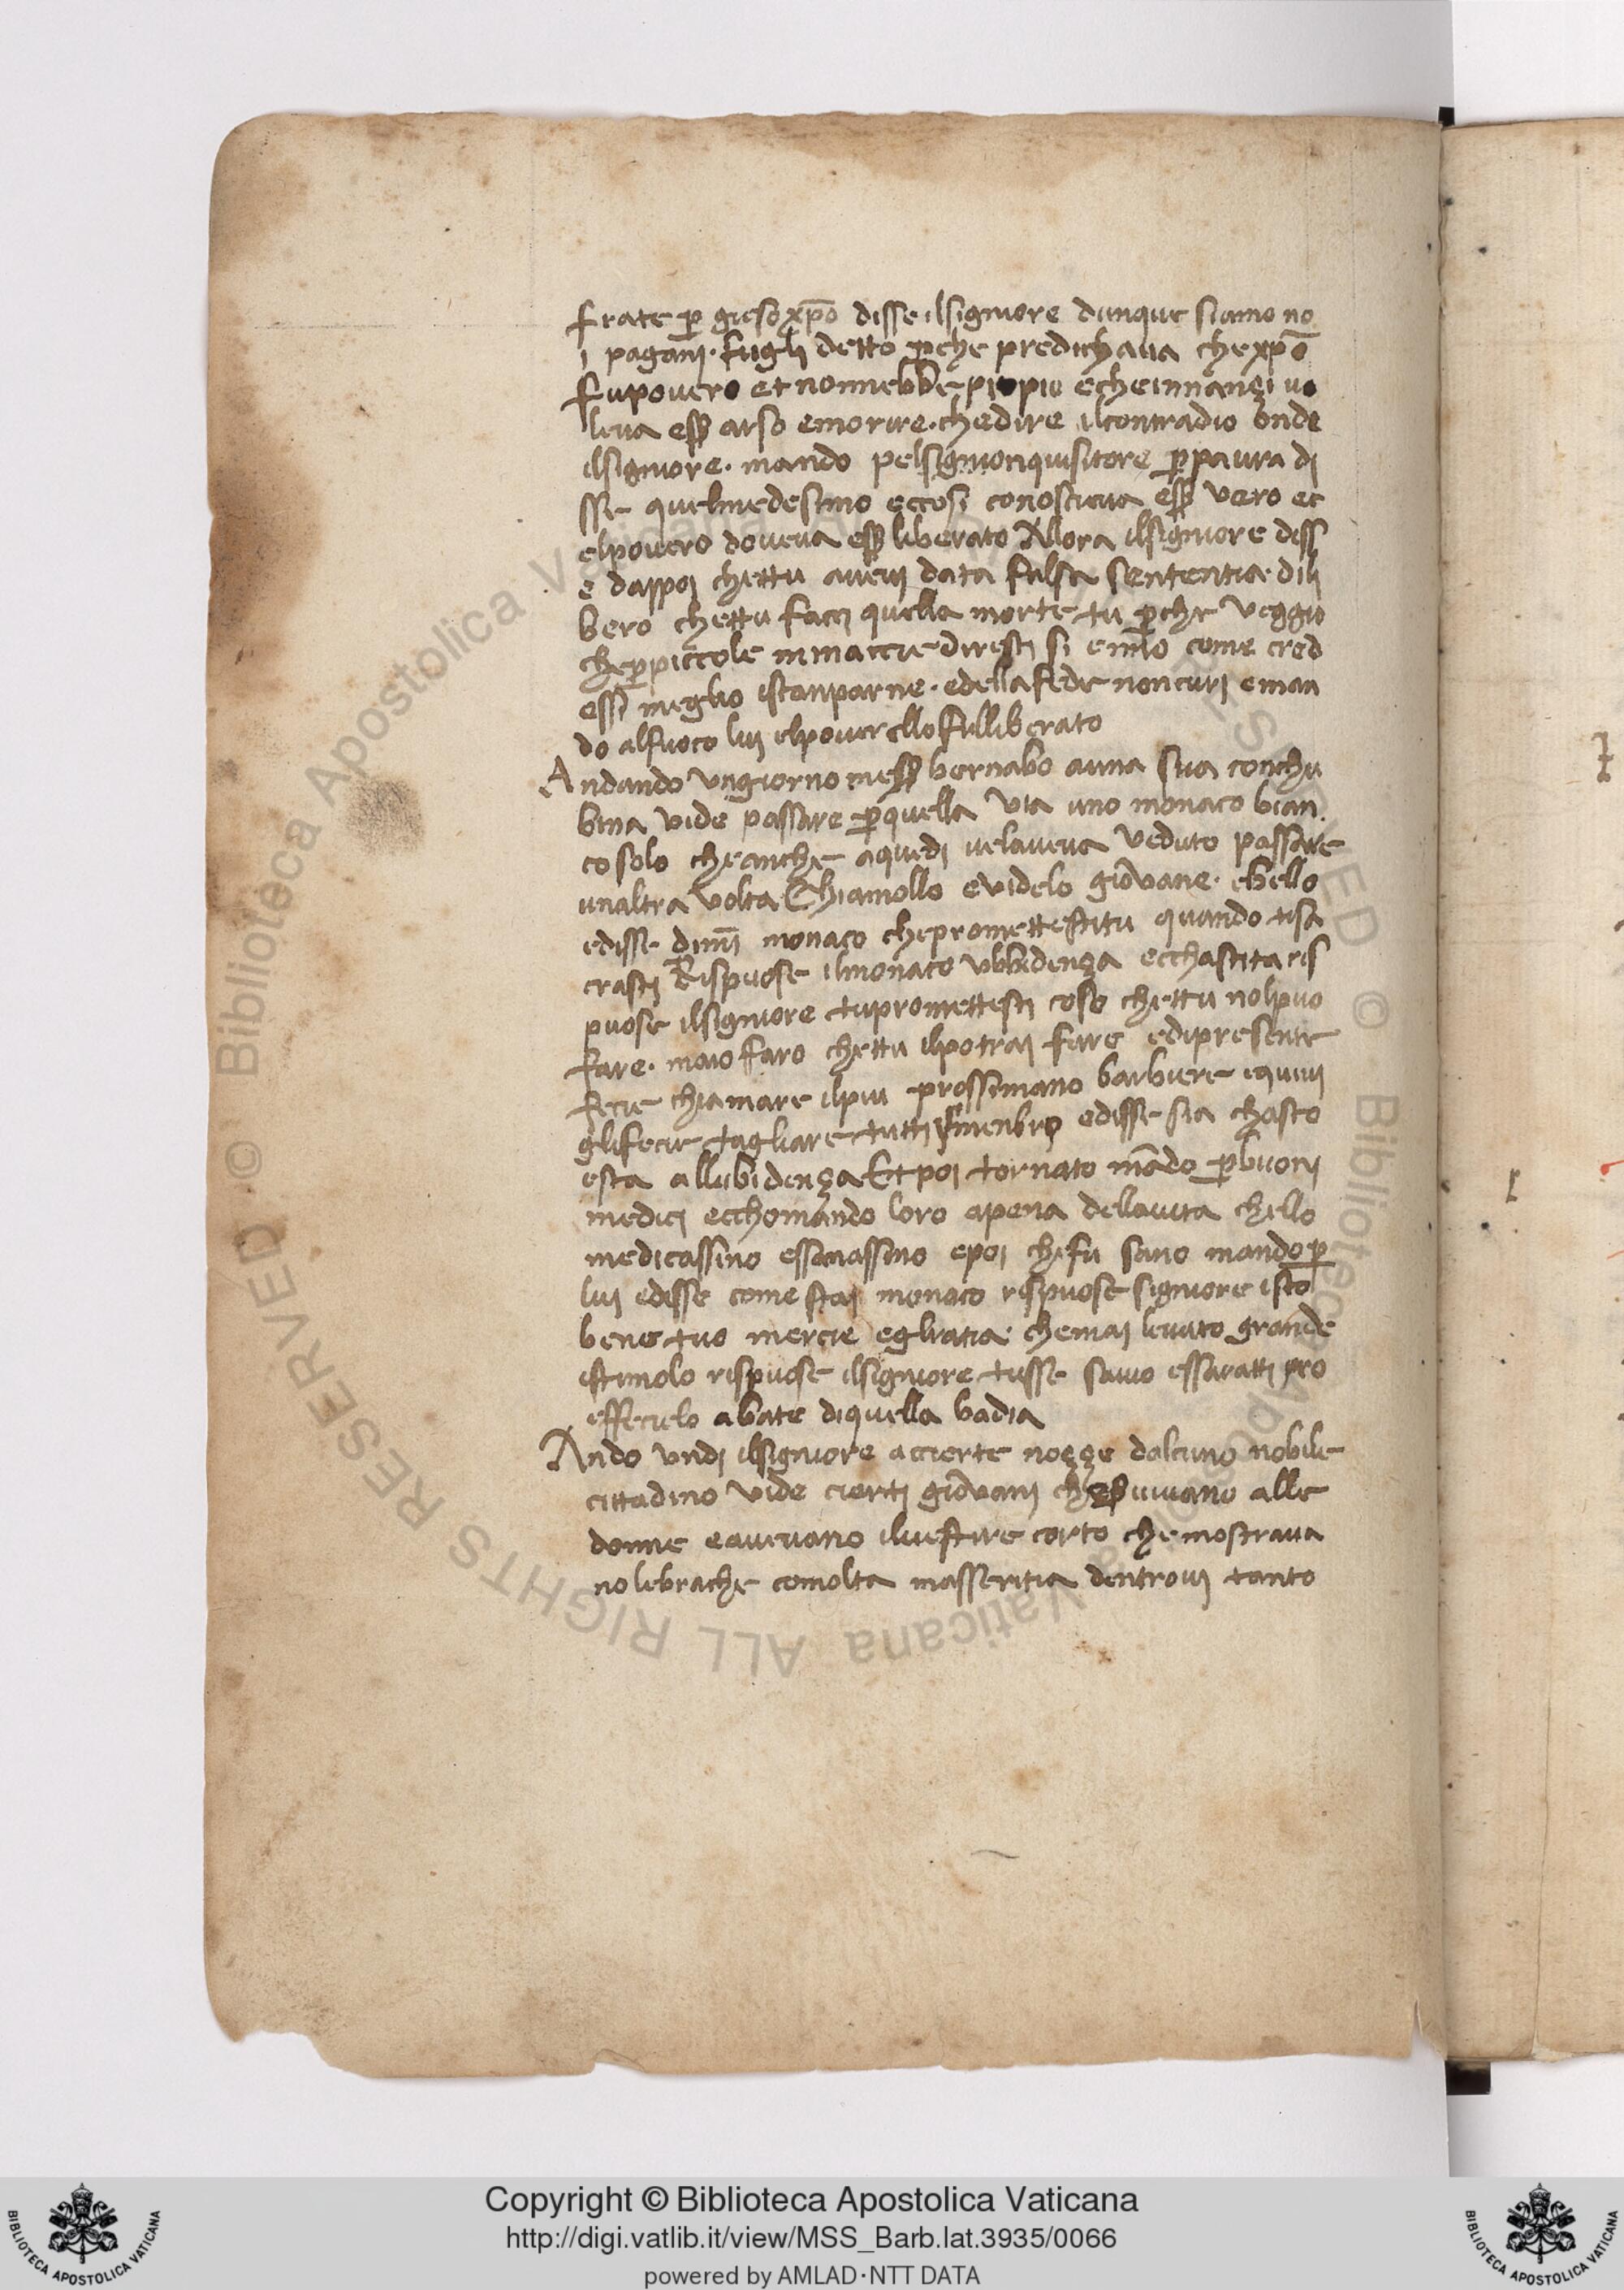 frate p̱ gieso xp̄o disse ilsigniore dunque siamo no
i pagani · fugli detto p̱che predichaua che xp̄o
fupouero et nonnebbe propio echeinnanzi uo
leua esse᷒ arso emorire · chedire ilcontradio onde
ilsigniore · mando pelsignionquisitore p̱paura di
sse quelmedesimo eccosi conosceua esse᷒ vero et
elpouero doueua esse᷒ liberato Allora ilsigniore diss
e dappoi chettu aueui data falsa sententia · dili
bero chettu facci quella morte tu p̱che veggio
chep̱piccole minaccie diresti si
essi meglio iscanparne · edellafede noncuri eman
do alfuoco lui elpouerellofulliberato
Andando vngiorno mess᷒ bernabo auna sua conchu
bina vide passare p̱quella via uno monaco bian
co solo cheanche aquedi velaueua veduto passare
unaltra volta Chiamollo evidelo giovane · ebello
edisse dim̄i monaco chepromettestitu quando tisa
crasti Rispuose ilmonaco vbbidenza ecchastita ris
puose ilsigniore tupromettesti cose chettu nolpuo
fare · maio faro chettu ilpotrai fare edipresente
fecie chiamare ilpiu prossimano barbiere equiui
glifecie tagliare tutti menbri edisse sia chasto
esta allubidenza Et poi tornato mādo p̱buoni
medici ecchomando loro apena dellauita chello
medicassino essanassino epoi chefu sano mando p̱
lui edisse come stai monaco rispuose signiore isto
bene tuo mercie egliatia · chemai leuato grande
istimolo rispuose ilsigniore tusse sauio essaratti pro
effecielo abate diquella badia
Ando undi ilsigniore accierte nozze dalcuno nobile
cittadino vide cierti giovani che seruiuano alle
donne eaueuano iluestire corto che mostraua
no lebrache comolta masseritia dentroui tanto
Copyright © Biblioteca Apostolica Vaticana
http://digi.vatlib.it/view/MSS_Barb.lat.3935/0066
powered by AMLAD·NTT DATA